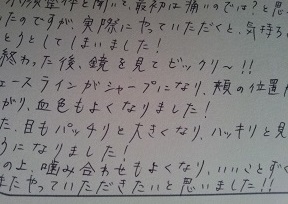 小顔整体と聞いて、最初は痛いのでは？と思
たのですが、実際にやっていただくと、気持ち
とりとしてしまいました！
終わった後、鏡を見てビックリ～!!
ェースラインがシャープになり、頬の位置
がり、血色もよくなりました！
た、目もパッチリと大きくなり、ハッキリと見
うになりました！
の上、噛み合わせもよくなり、いいことずく
またやっていただきたいと思いました!!